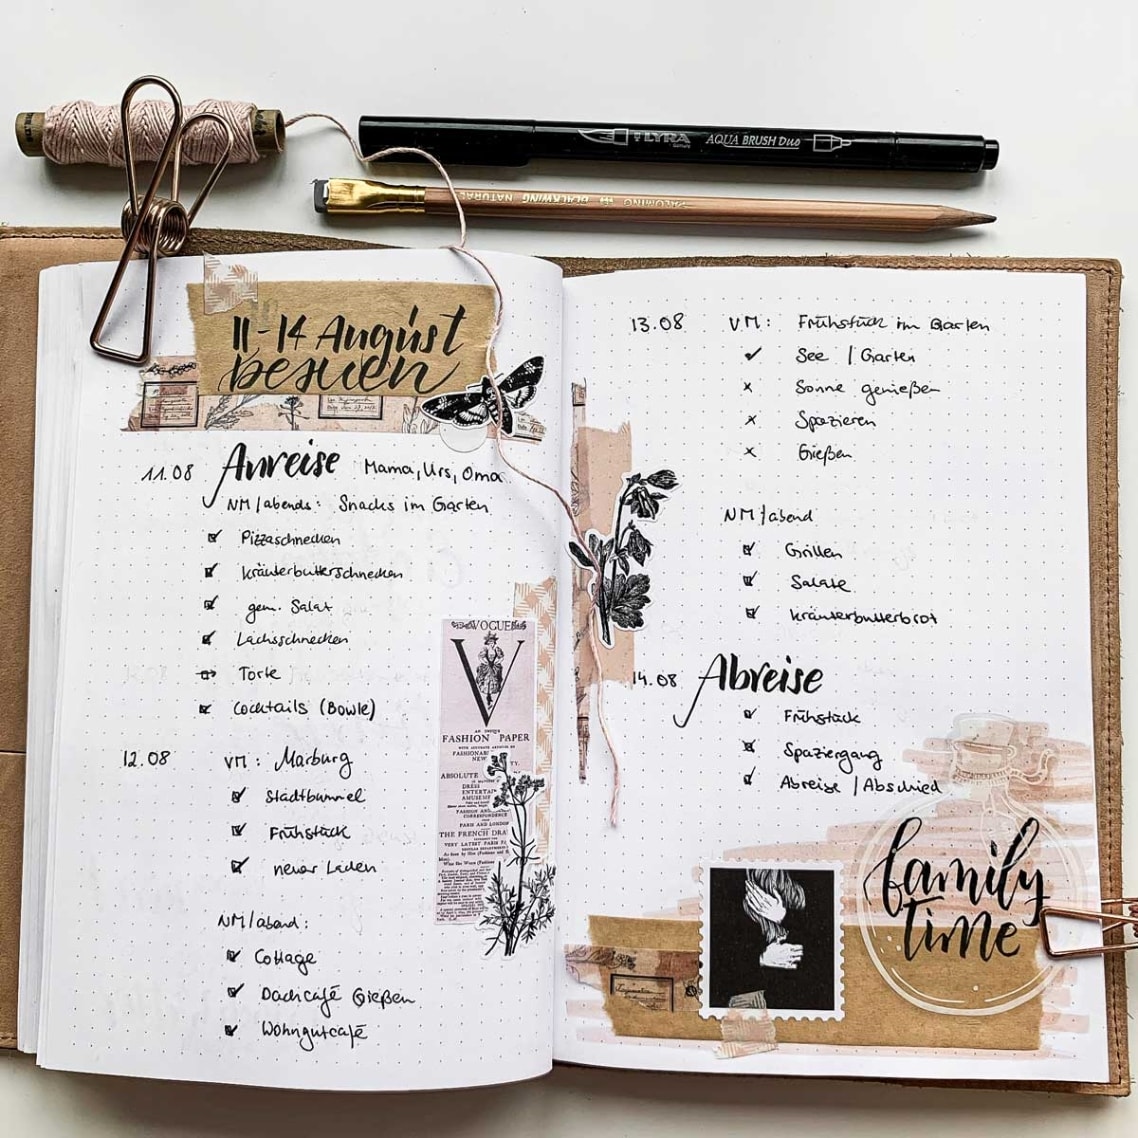 LYRA AQUA BRUSH DUO
BLACKWING NATURAL
11-14 August
11.08 Anreise Mama, Urs, Oma
NM/abends: Snacks im Garten
Pizzaschnecken
Kräuterbutterschnecken
gem. Salat
Lachsschnecken
Torte
Cocktails (Bowle)
12.08 VM: Marburg
Stadtbummel
Frühstück
neuer Laden
NM/abend:
Cottage
Dachcafé Gießen
Wohngutcafé
VOGUE
V
AN UNIQUE
FASHION PAPER
ABSOLUTE
DRESS
PARIS AND LONDON
THE FRENCH DRA
13.08 VM: Frühstück im Garten
See / Garten
Sonne genießen
Spazieren
Gießen
NM/abend
Grillen
Salate
Kräuterbutterbrot
14.08 Abreise
Frühstück
Spaziergang
Abreise / Abschied
family
time